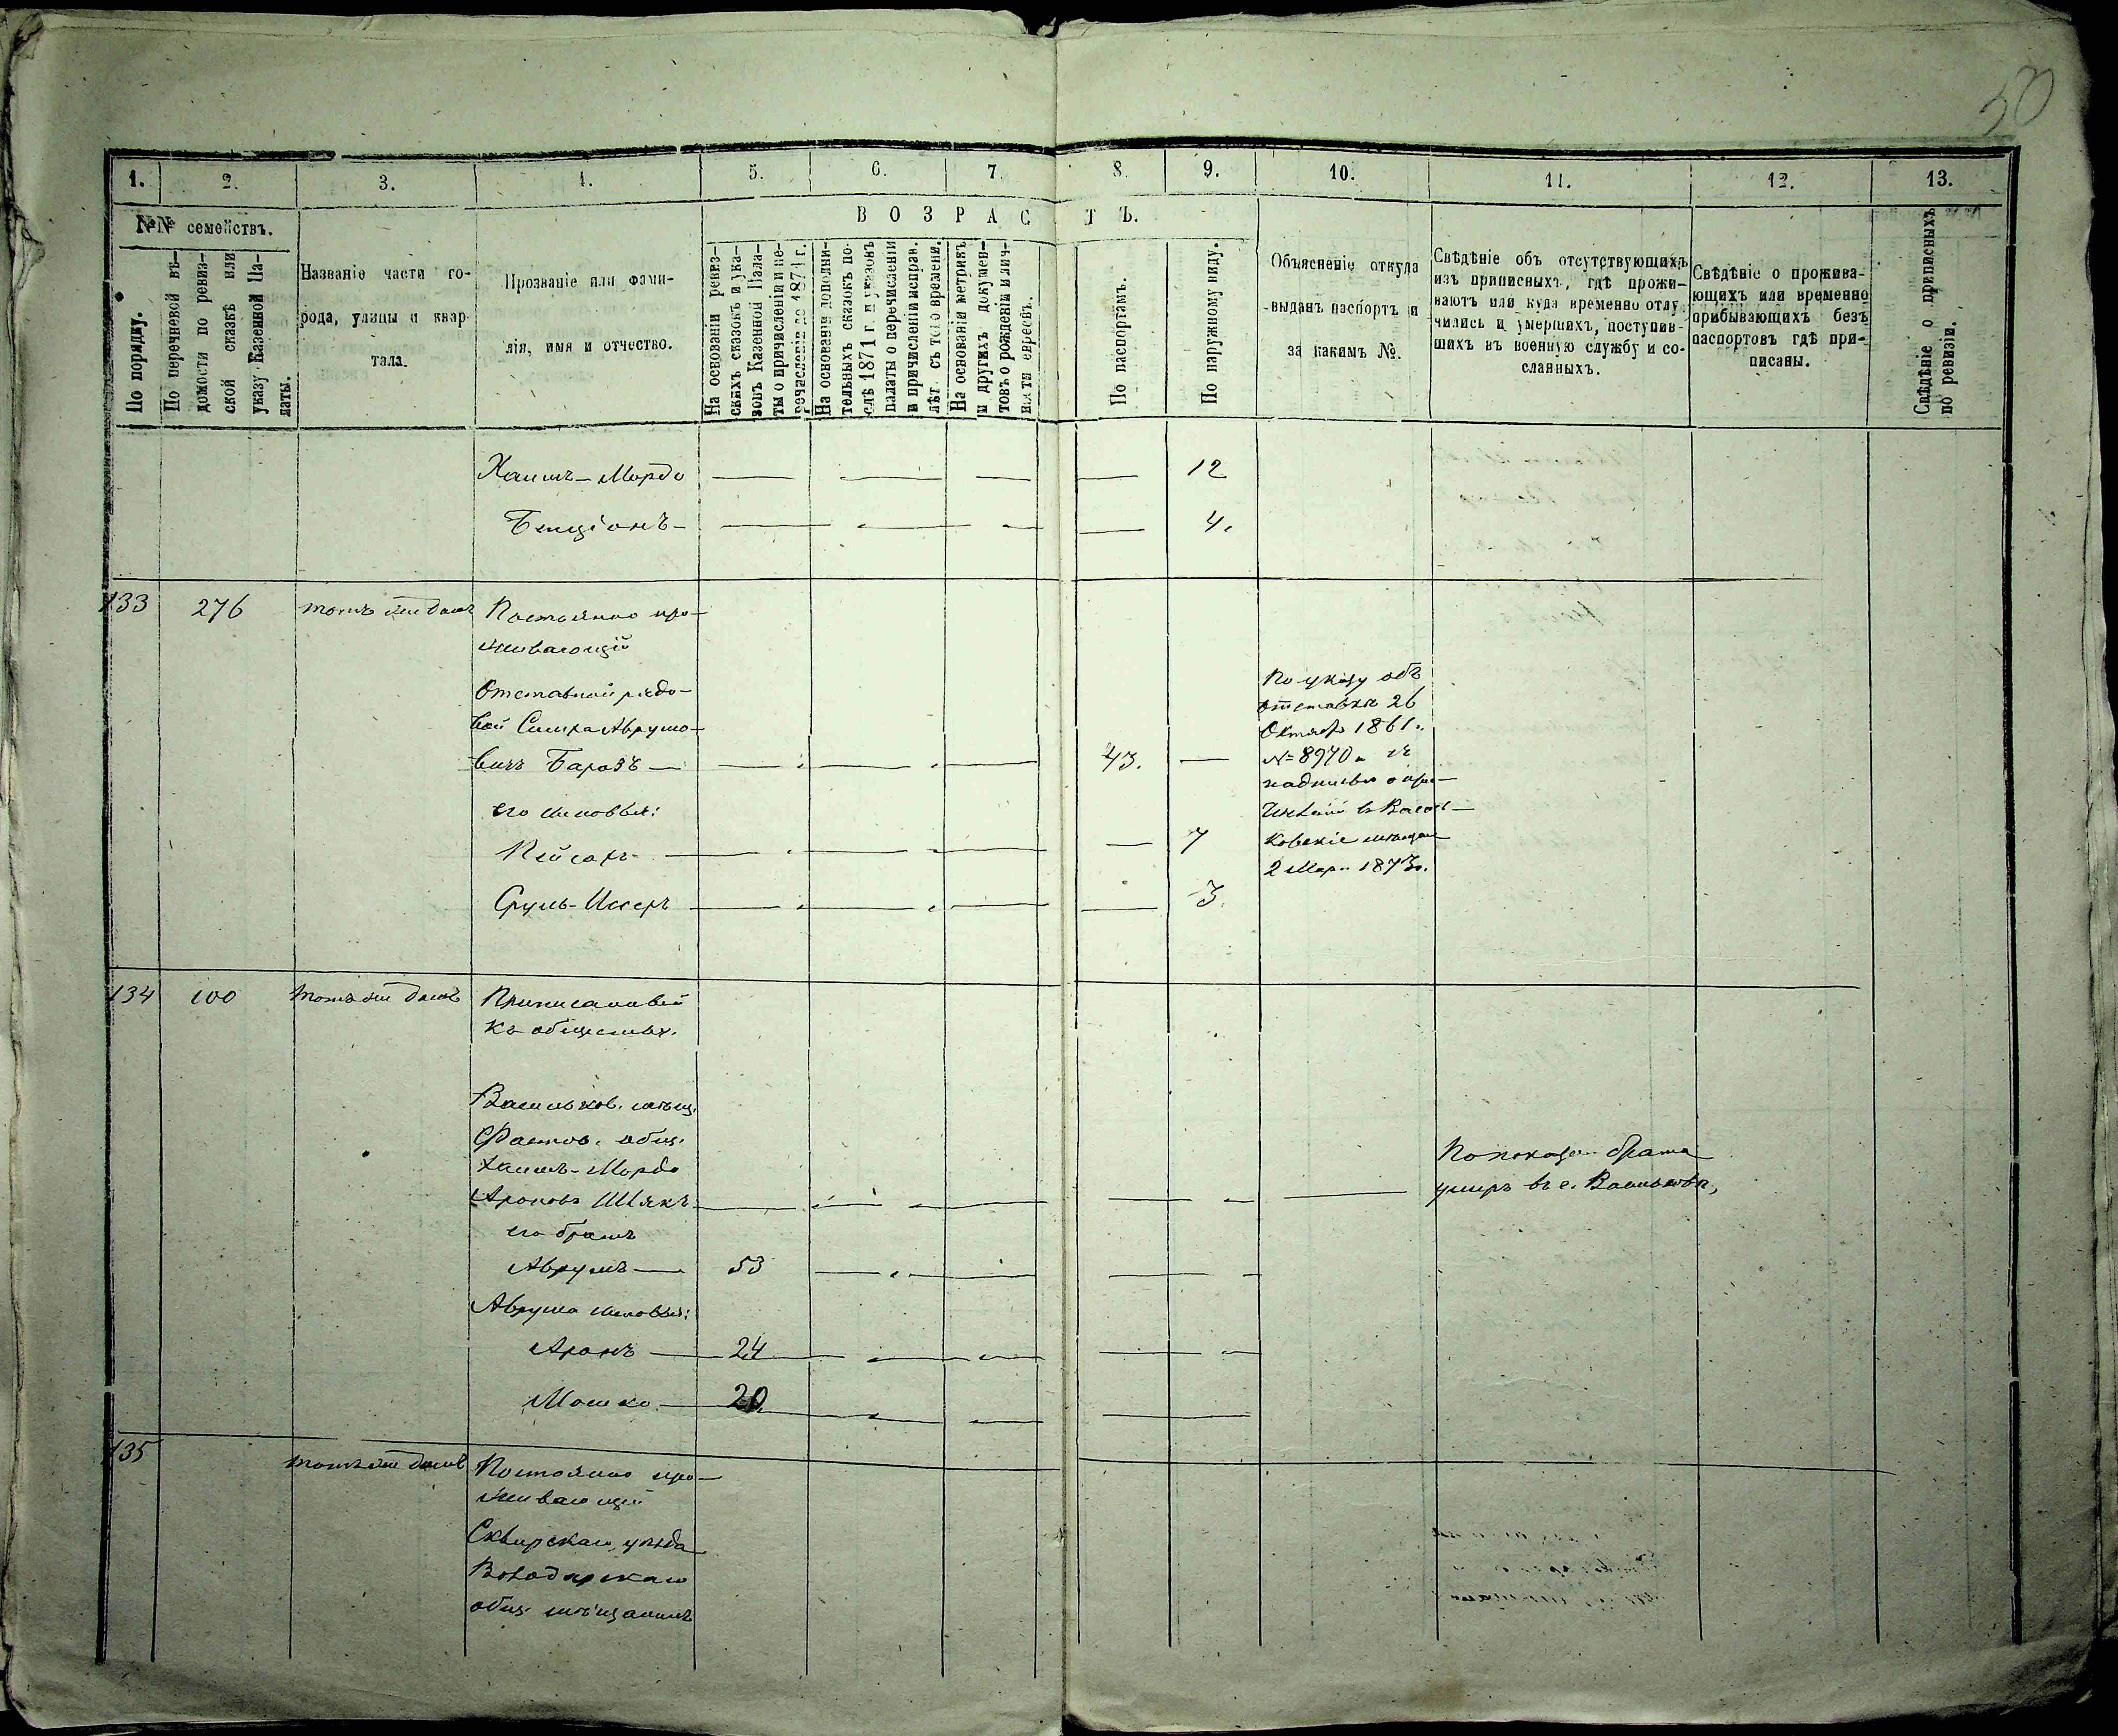 50
1. 2. 3. 4. 5. 6. 7. 8. 9. 10. 11. 12. 13.
№№ семействъ.
В О З Р А С Т Ъ.
По порядку.
По перечневой вѣ-
домости по ревиз-
ской сказкѣ или
указу Казенной Па-
латы.
Названіе части го-
рода, улицы и квар-
тала.
Прозваніе или фами-
лія, имя и отчество.
На основаніи ревиз-
скихъ сказокъ и ука-
зовъ Казенной Пала-
ты о причисленіи и пе-
речисленіи до 1871 г.
На основаніи дополни-
тельныхъ сказокъ по-
слѣ 1871 г. и указовъ
палаты о перечисленіи
и причисленіи исправ.
лѣт. съ того времени.
На основаніи метрикъ
и другихъ докумен-
товъ о рожденіи и лич-
ности евреевъ.
По паспортамъ.
По наружному виду.
Объясненіе откуда
выданъ паспортъ и
за какимъ №.
Свѣдѣніе объ отсутствующихъ
изъ приписныхъ, гдѣ прожи-
ваютъ или куда временно отлу-
чились и умершихъ, поступив-
шихъ въ военную службу и со-
сланныхъ.
Свѣдѣніе о прожива-
ющихъ или временно
прибывающихъ безъ
паспортовъ гдѣ при-
писаны.
Свѣдѣніе о приписныхъ
по ревизіи.
Хаимъ-Мордо — — — — 12
Бенціонъ — — — — 4.
133 276 тотъ же домъ Постоянно про-
живающій
Отставной рядо-
вой Авrумо-
вичъ Баразъ — — — 43. —
его сыновья:
Кейсаръ — — — — 7
Сруль-Иссеръ — — — — 3.
По указу объ
отставкѣ 26
Октяб 1861.
№ 8970 съ
надписью о при-
численіи в Василь-
ковскіе мѣщане
2 Мар. 1873 г.
134 100 тотъ же домъ Приписанный
къ обществу.
Васильков. мѣщ.
Фастов. общ.
Хаимъ-Мордо
Ароновъ Шлякъ — — — — — —
По показан. брата
умеръ въ г. Васильковѣ,
его братъ
Аврумъ — 53 — — — —
Аврума сыновья:
Аронъ — 24 — — — —
Мошко — 20 — — —
135 тотъ же домъ Постоянно про-
живающій
Сквирскаго уѣзда
Володарскаго
общ. мѣщанинъ